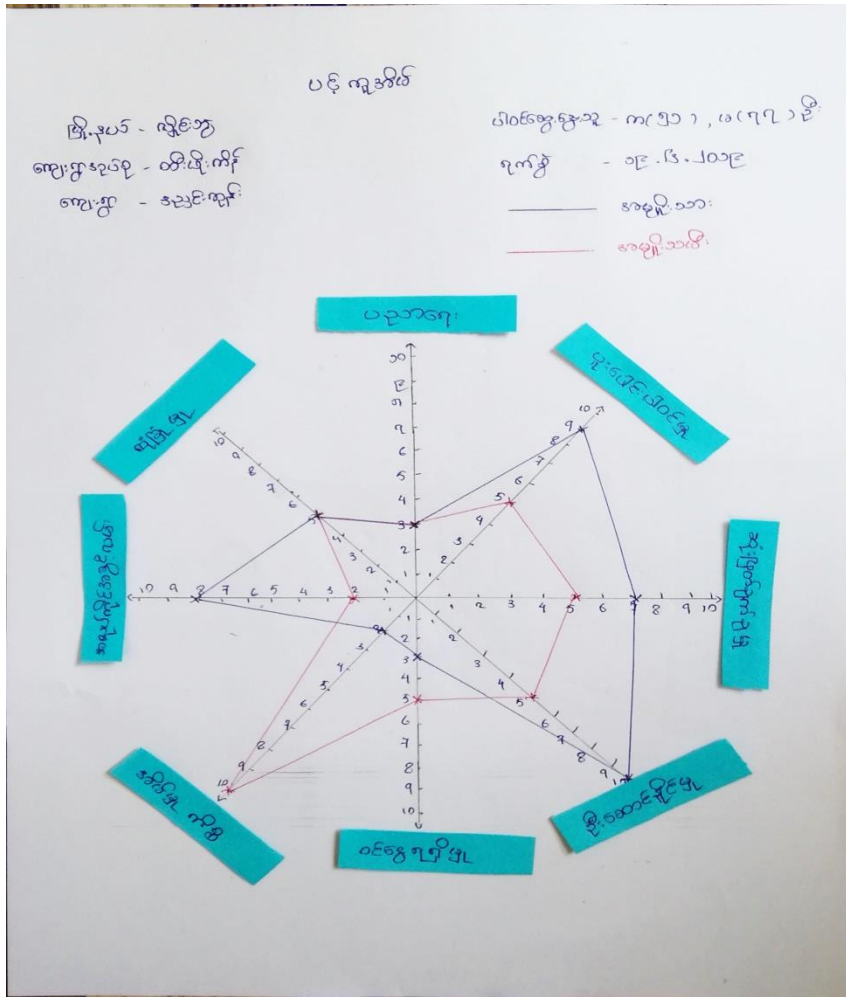 ပင့်ကူအိမ်
မြို့နယ် - လှိုင်းဘွဲ့
ကျေးရွာအုပ်စု - တီးဖိုးကိန်
ကျေးရွာ - ညှင်းကုန်း
ပါဝင်ဆွေးနွေးသူ - က(၅၁), မ(၇၇)ဦး
ရက်စွဲ - ၁၉.၆.၂၀၁၉
အမျိုးသား
အမျိုးသမီး
ပညာရေး
ပူးပေါင်းပါဝင်မှု
ဆုံးဖြတ်ချက်ချမှု
ဦးဆောင်နိုင်မှု
ဝင်ငွေရရှိမှု
အိမ်မှုကိစ္စ
လုံခြုံမှု
၁၀
၉
၈
၇
6
5
4
3
2
10
9
8
7
6
5
4
3
2
1
1
2
3
4
5
7
6
8
9
10
1
2
3
4
5
6
7
8
9
10
1
2
3
4
5
6
7
8
9
10
2
3
4
5
6
7
8
9
10
10
9
8
7
6
5
4
3
2
10
9
8
7
6
5
4
3
2